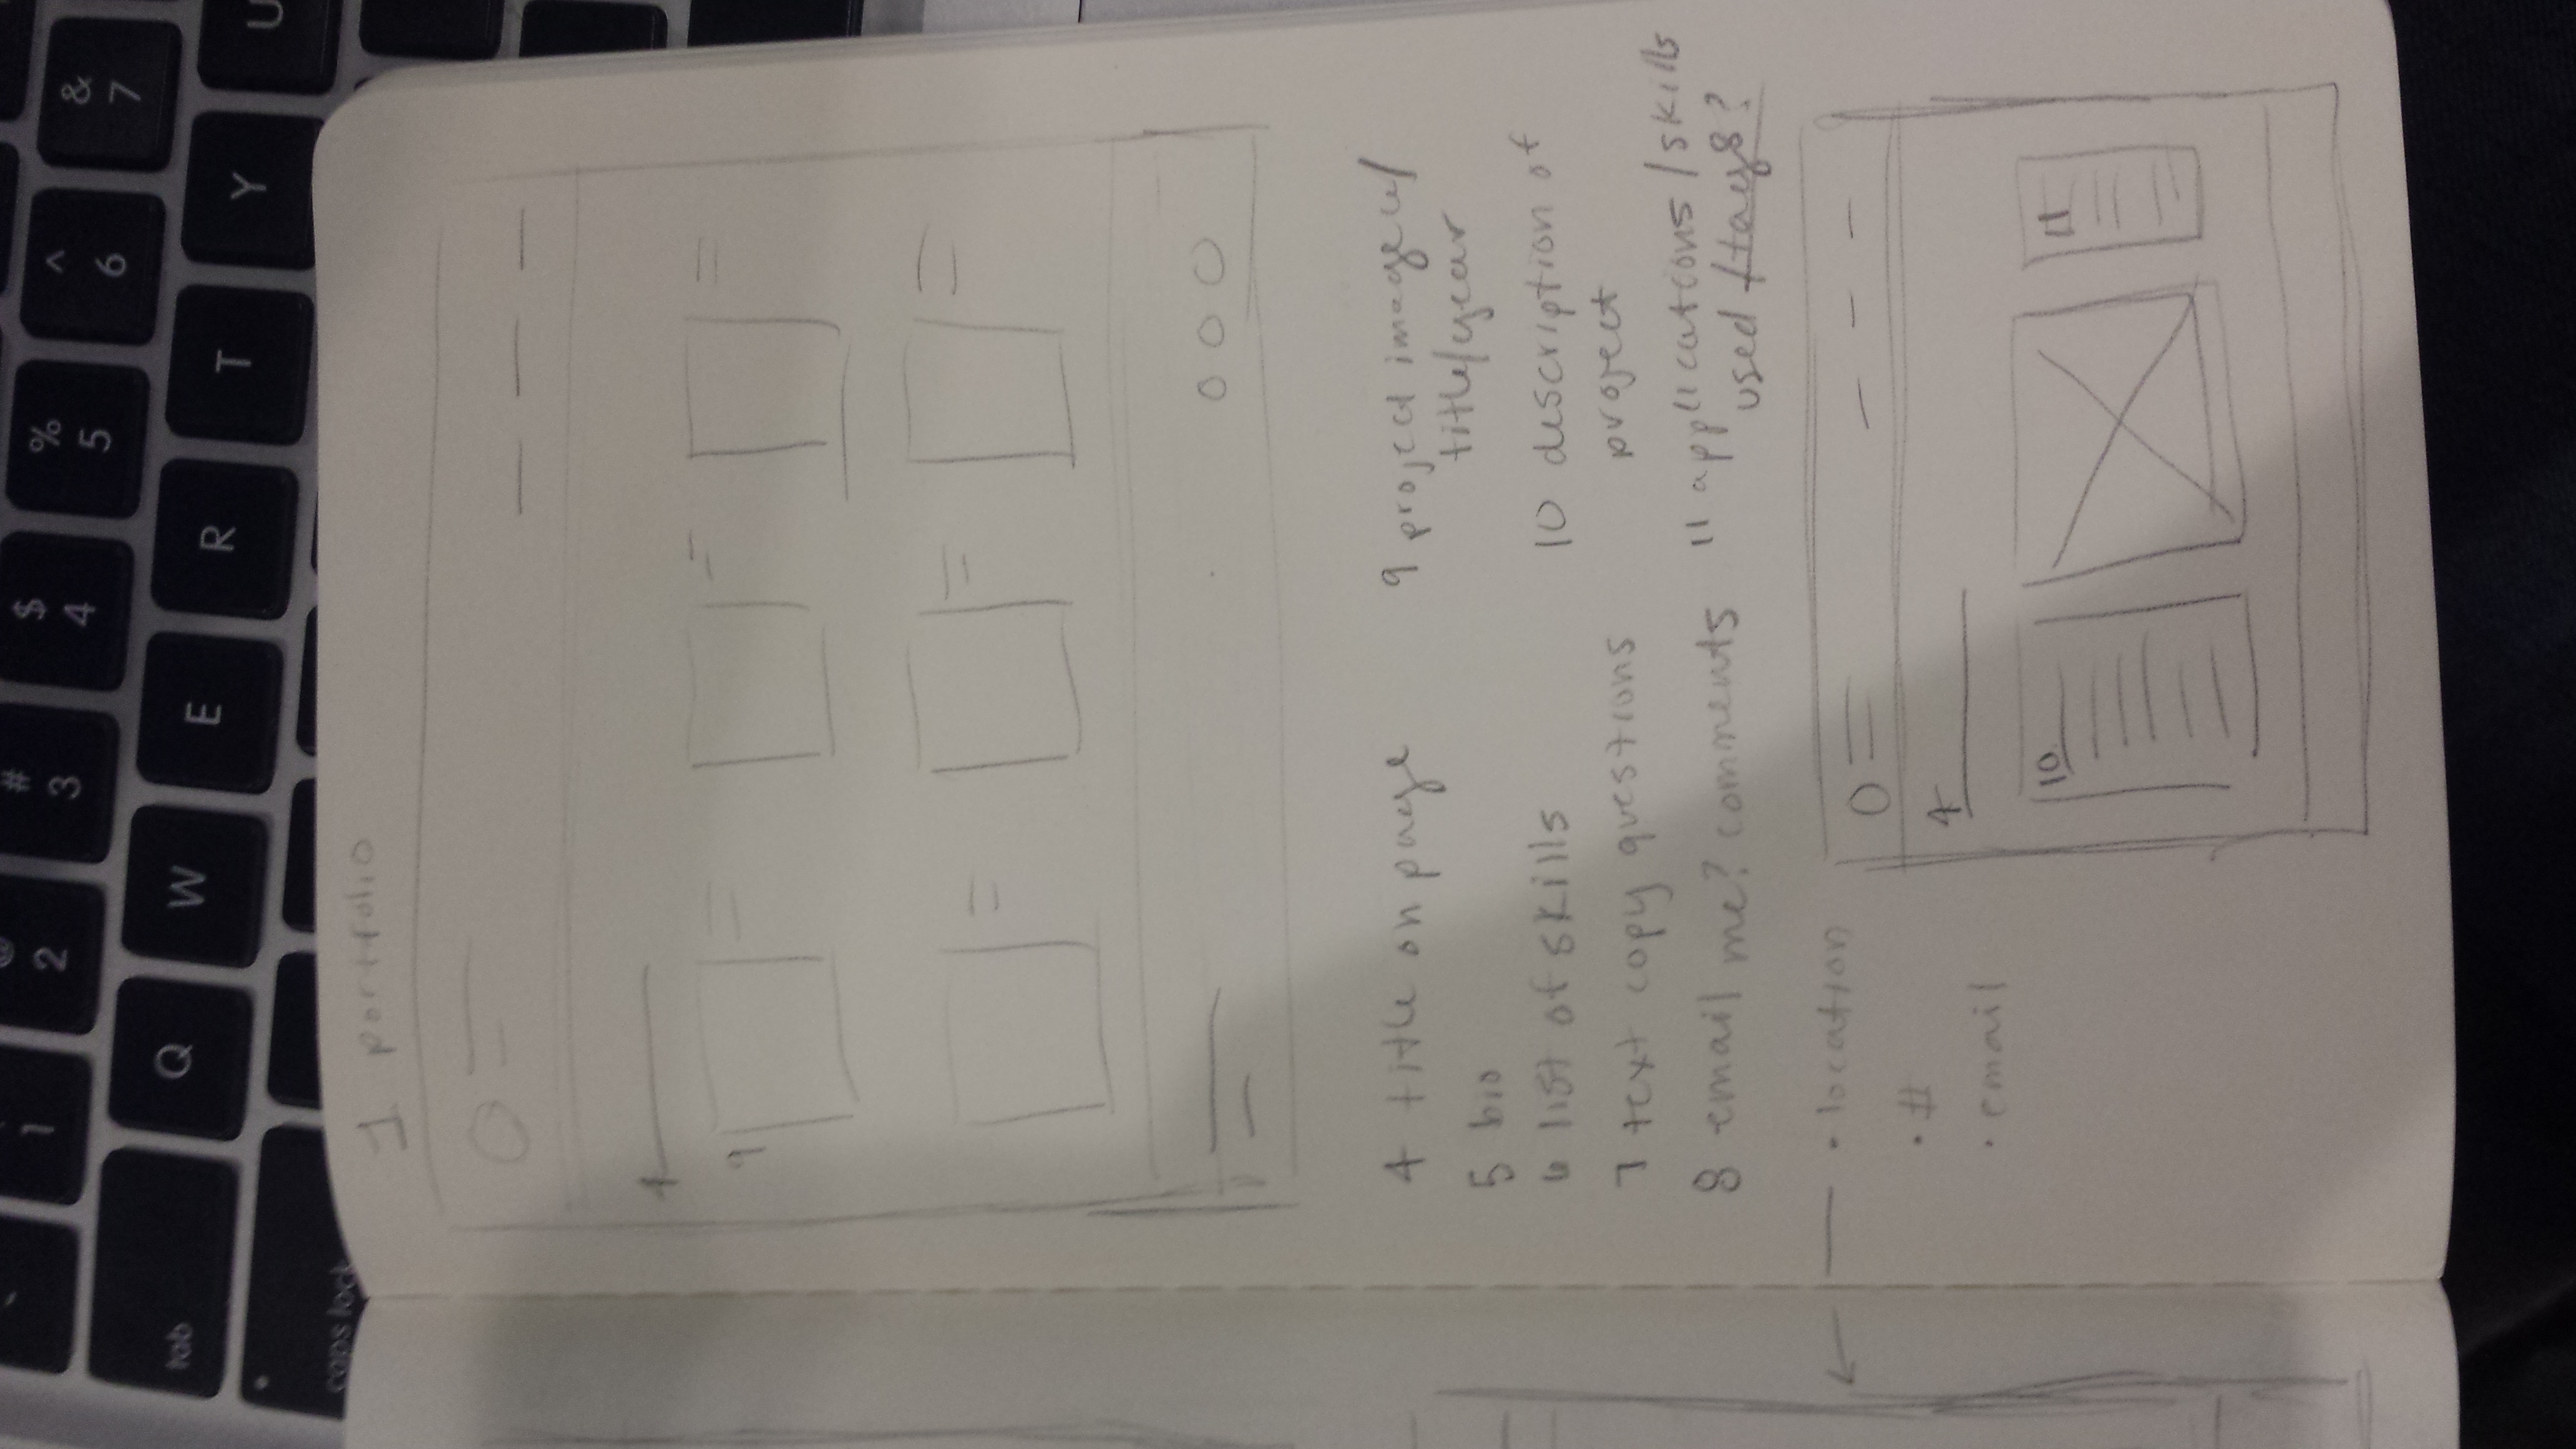 ~
! 1
@ 2
# 3
$ 4
% 5
^ 6
& 7
tab
Q
W
E
R
T
Y
U
caps lock
1 portfolio
4
9
4 title on page
5 bio
6 list of skills
7 text copy questions
8 email me? comments
• location
• #
• email
9 project image w/
title/year
10 description of
project
11 applications/skills
used /tags?
4
10
11